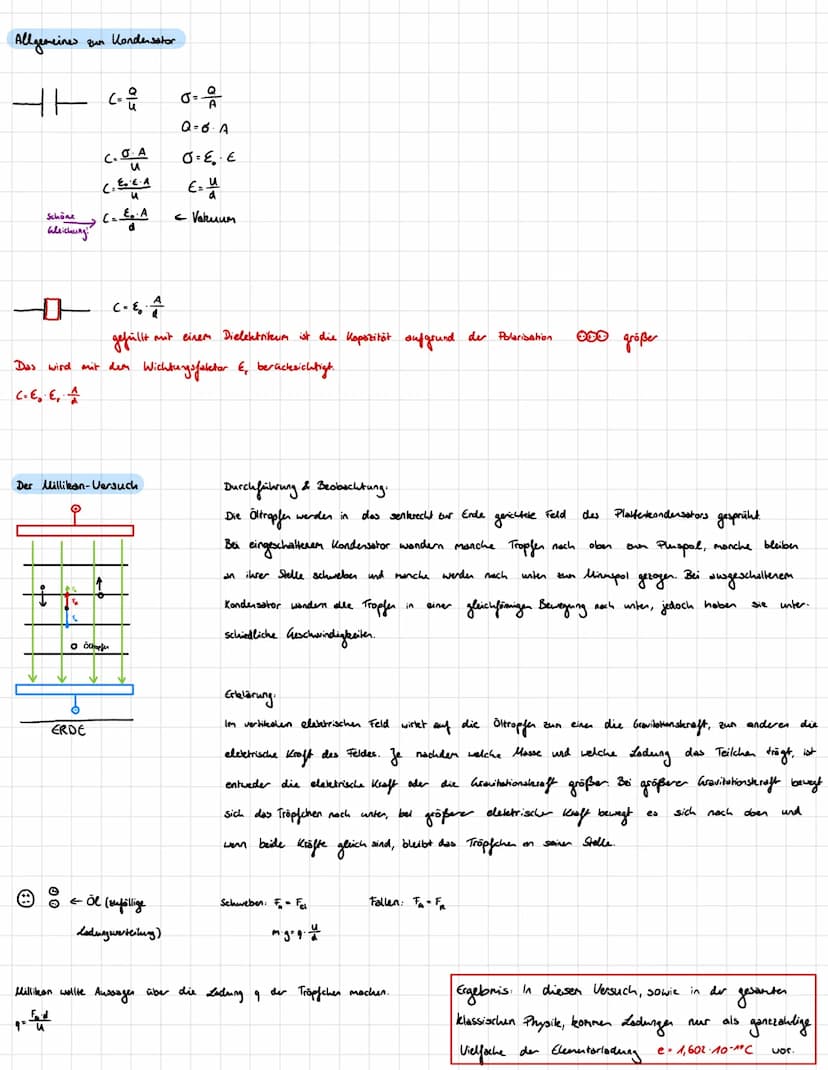 Allgemeines zum Kondensator
C = Q/U   σ = Q/A
Q = σ · A
C = σ · A/U   σ = ε₀ · E
C = ε₀ · E · A/U   E = U/d
Schöne Gleichung: → C = ε₀ · A/d   ← Vakuum
C = ε₀ · A/d
gefüllt mit einem Dielektrikum ist die Kapazität aufgrund der Polarisation größer
Das wird mit dem Wichtungsfaktor εᵣ berücksichtigt.
C = ε₀ · εᵣ · A/d
Der Millikan-Versuch
Öltropfen
ERDE
Durchführung & Beobachtung:
Die Öltropfen werden in das senkrecht zur Erde gerichtete Feld des Plattenkondensators gesprüht.
Bei eingeschaltenem Kondensator wandern manche Tropfen nach oben zum Pluspol, manche bleiben
an ihrer Stelle schweben und manche werden nach unten zum Minuspol gezogen. Bei ausgeschaltenem
Kondensator wandern alle Tropfen in einer gleichförmigen Bewegung nach unten, jedoch haben sie unter-
schiedliche Geschwindigkeiten.
Erklärung:
Im vertikalen elektrischen Feld wirkt auf die Öltropfen zum einen die Gravitationskraft, zum anderen die
elektrische Kraft des Feldes. Je nachdem welche Masse und welche Ladung das Teilchen trägt, ist
entweder die elektrische Kraft oder die Gravitationskraft größer. Bei größerer Gravitationskraft bewegt
sich das Tröpfchen nach unten, bei größerer elektrischer Kraft bewegt es sich nach oben und
wenn beide Kräfte gleich sind, bleibt das Tröpfchen an seiner Stelle.
← Öl (zufällige
Ladungsverteilung)
Schweben:   Fallen:
m · g = q · U/d
Millikan wollte Aussagen über die Ladung q der Tröpfchen machen.
Ergebnis: In diesem Versuch, sowie in der gesamten
klassischen Physik, kommen Ladungen nur als ganzzahlige
Vielfache der Elementarladung e = 1,602 · 10⁻¹⁹C vor.